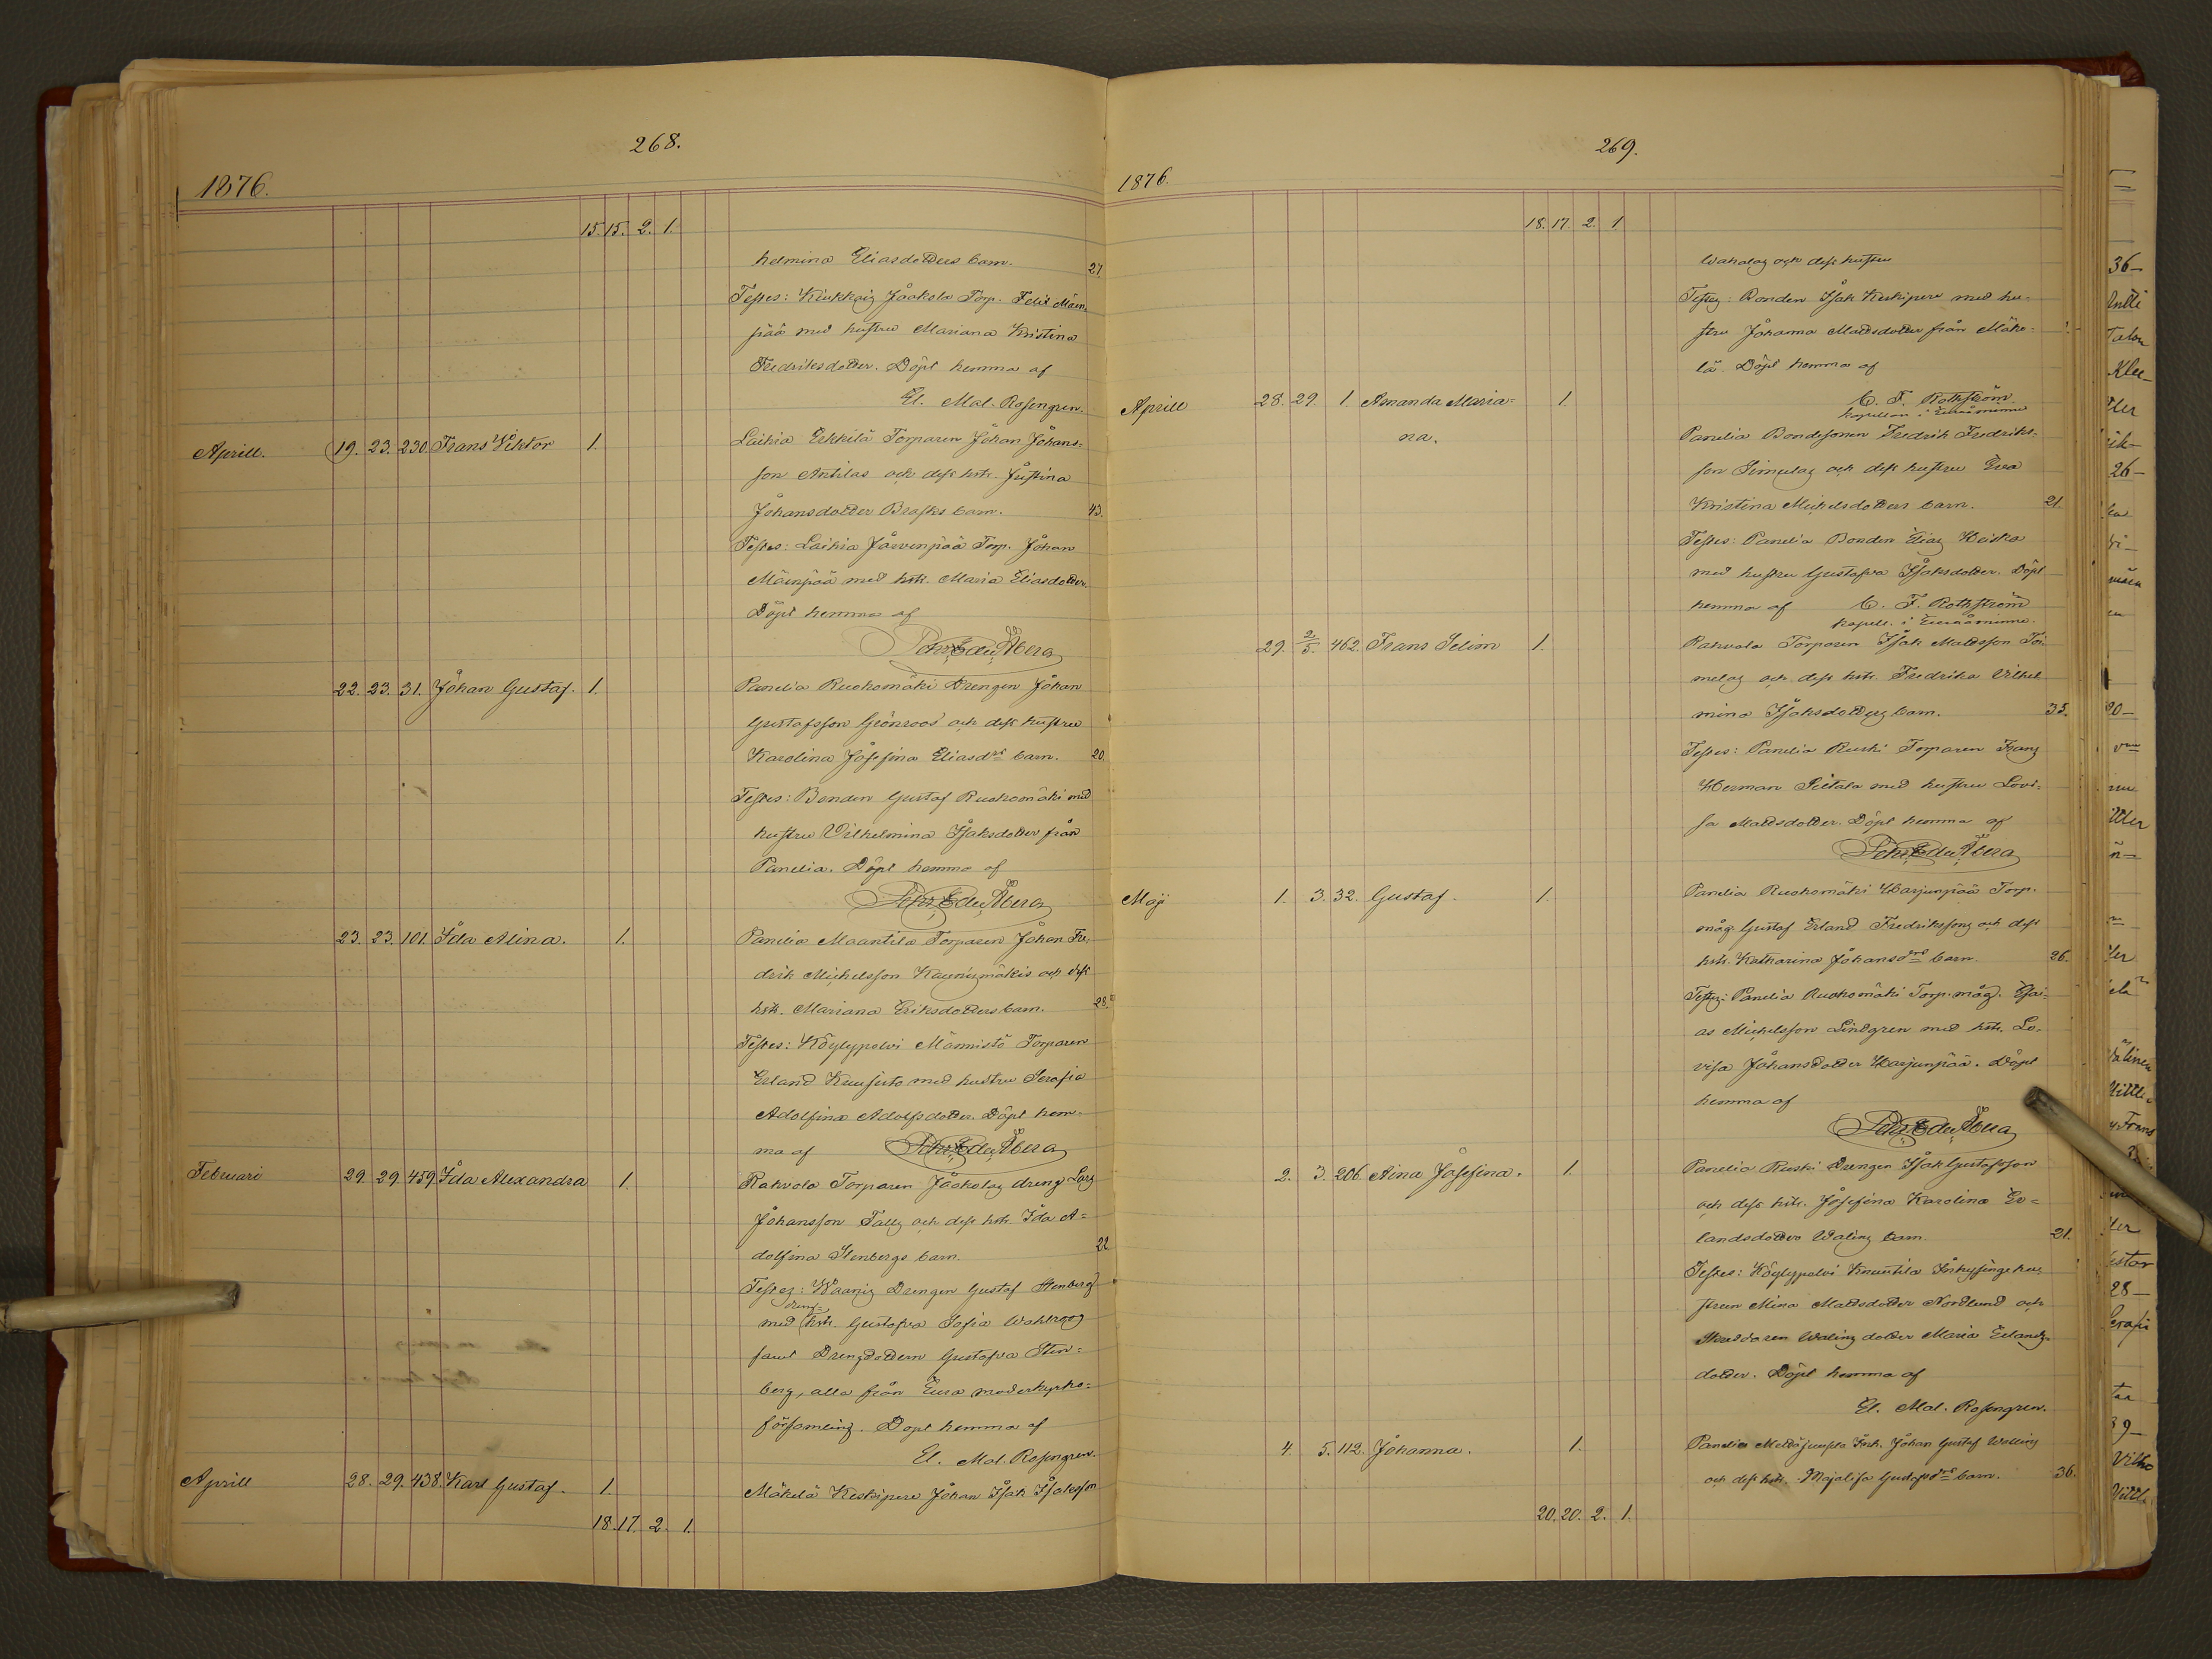 268.
1876.
15. 15. 2. 1.
helmina Eliasdotters barn. 27.
Testes: Kiukkais Jaakola Torp. Felix Mäen-
pää med hustru Mariana Kristina
Fredriksdotter. Döpt hemma af
El. Mal. Rosengren.
Aprill. 19. 23. 230. Frans Viktor 1. Laihia Erkkilä Torparen Johan Johans-
son Antilas och dess hstr. Justina
Johansdotter Brasks barn. 43.
Testes: Laihia Järvenpää Torp. Johan
Mäenpää med hstr. Maria Eliasdotter.
Döpt hemma af
Petr. Edu. Åberg
22. 23. 31. Johan Gustaf. 1. Panelia Ruohomäki Drengen Johan
Gustafsson Grönroos och dess hustru
Karolina Josefina Eliasdrs barn. 20.
Testes: Bonden Gustaf Ruohomäki med
hustru Vilhelmina Isaksdotter från
Panelia. Döpt hemma af
Petr. Edu. Åberg
23. 23. 101. Ida Mina. 1. Panelia Maantila Torparen Johan Fre-
drik Michelsson Kaunismäkis och dess
hstr. Mariana Eriksdotters barn. 28.
Testes: Köylypolvi Männistö Torparen
Erland med hustru Serafia
Adolfina Adolfsdotter. Döpt hem-
ma af Petr. Edu. Åberg
Februari 29. 29. 459. Ida Alexandra 1. Rahvola Torparen Jaakolas dreng Lars
Johansson Falls och dess hstr. Ida A-
dolfina Stenbergs barn. 22
Testes: Waanis Drengen Gustaf Stenberg
med hstr. Gustafva Sofia Wahlroos
samt Drengdottern Gustafva Sten-
berg, alla från Eura moderkyrko-
församling. Döpt hemma af
El. Mal. Rosengren.
Aprill 28. 29. 438. Karl Gustaf. 1. Mäkelä Keskipere Johan Isak Isaksson
18. 17. 2. 1.
269.
1876.
18. 17. 2. 1
och dess hustru
Testes: Bonden Isak Keskipere med hu-
stru Johanna Mattsdotter från Mäke-
lä. Döpt hemma af
C. F. Rothström
kapellan i Euraåminne
Aprill 28. 29. 1. Amanda Maria- 1.
na.
Panelia Bondesonen Fredrik Fredriks-
son Simulas och dess hustru Eva
Kristina Michelsdotters barn. 21.
Testes: Panelia Bonden Elias Keiska
med hustru Gustafva Isaksdotter. Döpt
hemma af C. F. Rothström
kapell. i Euraåminne.
29. 2/5. 462. Frans Selim 1. Rahvola Torparen Isak Mattsson Tör-
melas och dess hstr. Fredrika Vilhel
mina Isaksdotters barn. 35.
Testes: Panelia Ruski Torparen Frans
Herman Pietala med hustru Lovi-
sa Mattsdotter. Döpt hemma af
Petr. Edu. Åberg
Maji 1. 3. 32. Gustaf. 1. Panelia Ruohomäki Harjunpää Torp.
måg Gustaf Erland Fredrikssons och dess
hstr. Katharina Johansdrs barn. 26.
Testes: Panelia Ruohomäki Torp. måg. Esai-
as Michelsson Lindgren med hstr. Lo-
visa Johansdotter Harjunpää. Döpt
hemma af
Petr. Edu. Åberg
2. 3. 206. Aina Josefina. 1. Panelia Ruski Drengen Isak Gustafsson
och dess hstr. Josefina Karolina Er-
landsdotter Walins barn. 21.
Testes: Köylypolvi Knuutila Inhysingehu-
strun Mina Mattsdotter Nordlund och
Skräddaren Walins dotter Maria Erlands-
dotter. Döpt hemma af
El. Mal. Rosengren.
4. 5. 112. Johanna. 1. Panelia Inh. Johan Gustaf Walling
och dess hstr. Majalisa Gustafsdrs barn. 36.
20. 20. 2. 1.